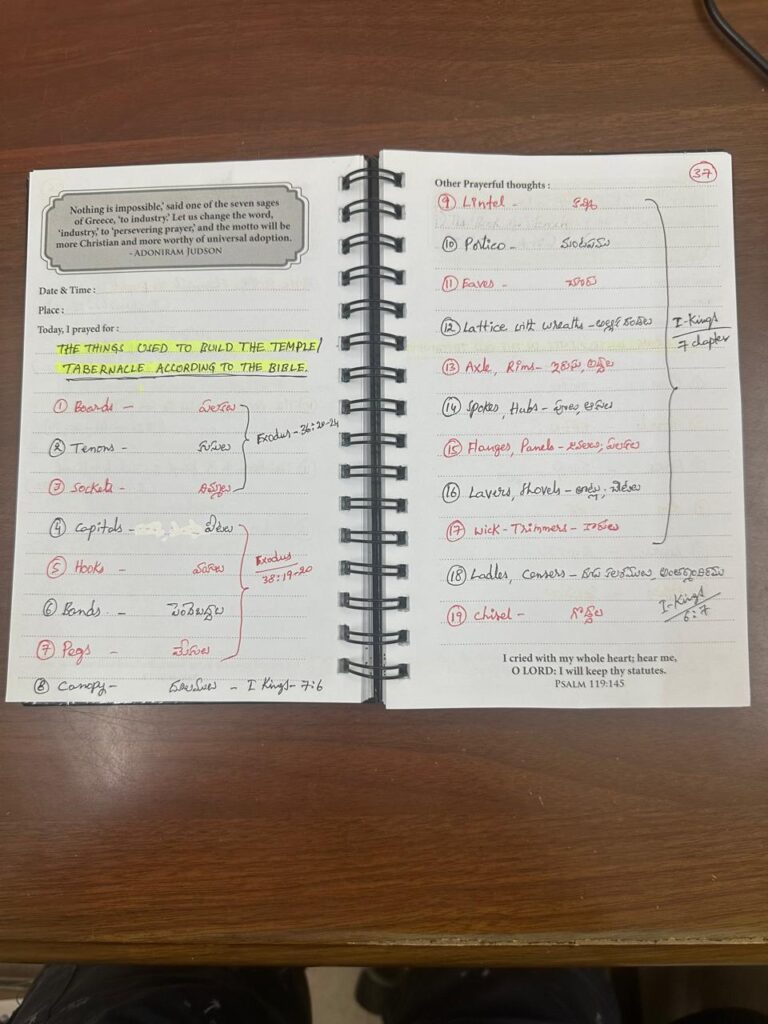 Nothing is impossible,' said one of the seven sages
of Greece, 'to industry.' Let us change the word,
'industry,' to 'persevering prayer,' and the motto will be
more Christian and more worthy of universal adoption.
- ADONIRAM JUDSON
Date & Time :
Place :
Today, I prayed for :
THE THINGS USED TO BUILD THE TEMPLE/
TABERNACLE ACCORDING TO THE BIBLE.
① Boards - పలకలు
② Tenons - కుసులు
③ Sockets - దిమ్మలు
Exodus - 36:20-24
④ Capitals - పీటలు
⑤ Hooks -
Exodus
38:19-20
⑥ Bands - పెండెబద్దలు
⑦ Pegs - మేకులు
⑧ Canopy - - I Kings - 7:6
37
Other Prayerful thoughts :
⑨ Lintel -
⑩ Portico - మంటపము
⑪ Eaves -
⑫ Lattice with wreaths -
I-Kings
7 chapter
⑬ Axle, Rims -
⑭ Spokes, Hubs -
⑮ Flanges, Panels -
⑯ Lavers, Shovels -
⑰ Wick-Trimmers -
⑱ Ladles, Censers -
⑲ Chisel -
I-Kings
6:7
I cried with my whole heart; hear me,
O LORD: I will keep thy statutes.
PSALM 119:145